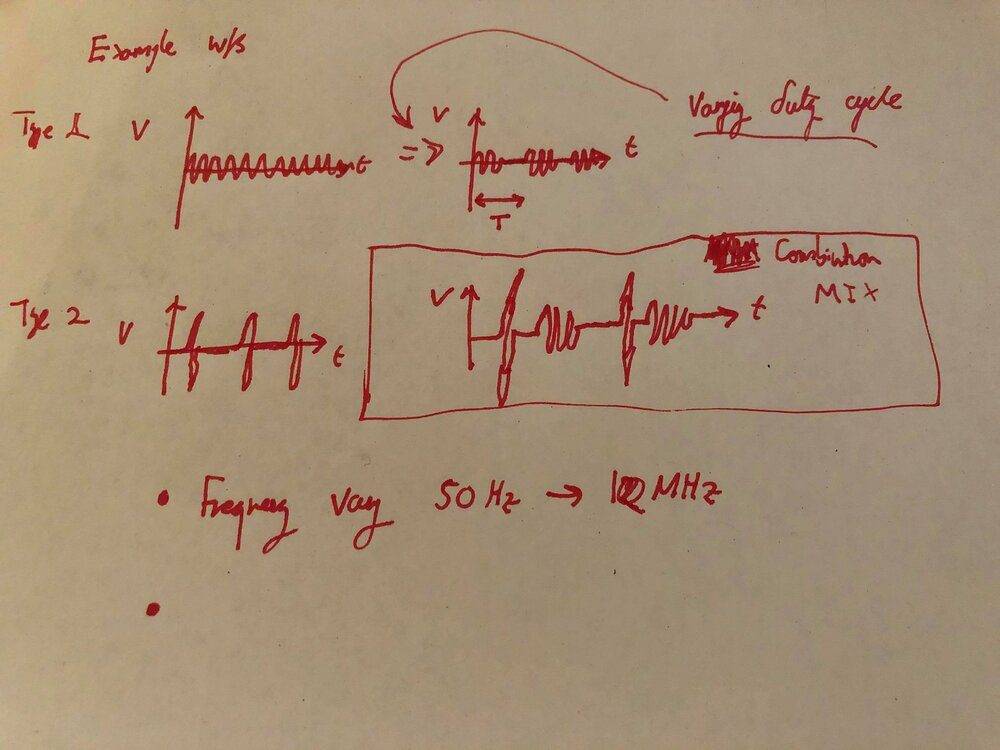 Example w/s
Type 1 V t => V t T
Varying duty cycle
Type 2 V t
Combination
MIX
V t
• Frequency vary 50 Hz → MHz
•